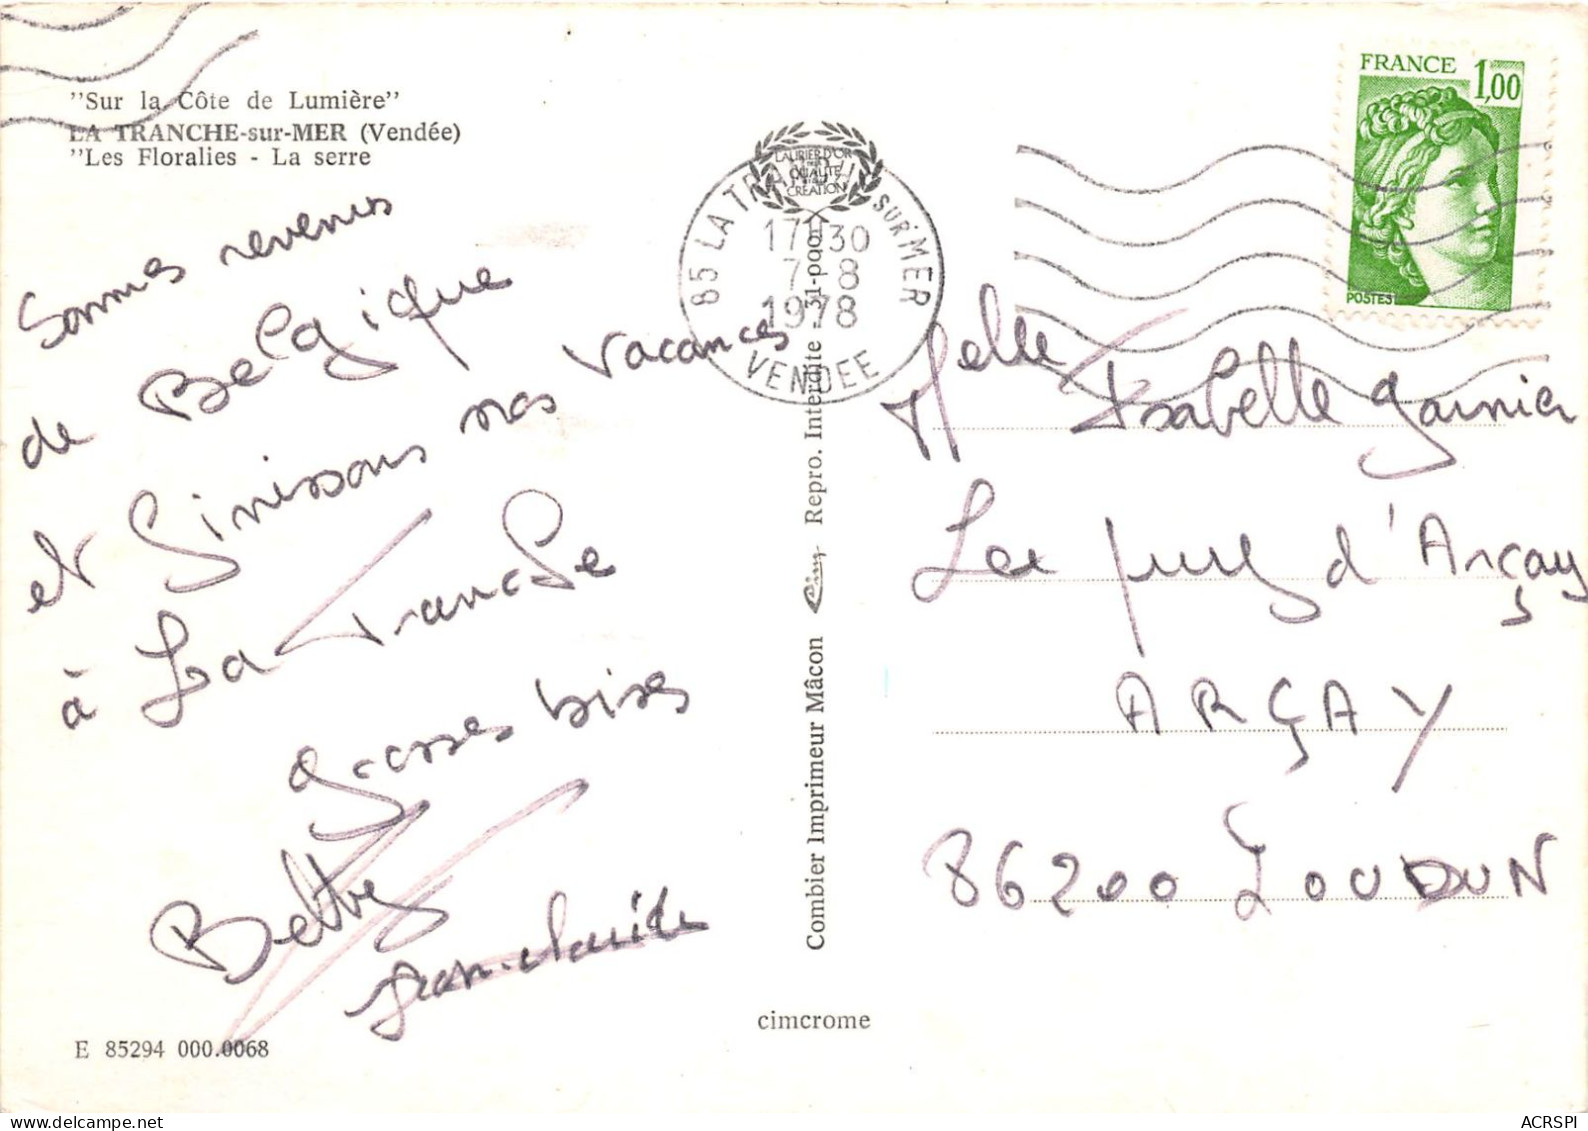 "Sur la Côte de Lumière"
LA TRANCHE-sur-MER (Vendée)
"Les Floralies - La serre
Sommes revenus
de Belgique
et finissons nos vacances
à La Tranche
grosses bises
Betty
Jean-claude
E 85294 000.0068
LAURIER D'OR
DE LA
QUALITÉ
CRÉATION
85 LA TRANCHE SUR MER
17H30
7-8
1978
VENDEE
Combier Imprimeur Mâcon Cim Repro. Interdite - 31-000
cimcrome
FRANCE 1,00
POSTES
Melle Isabelle Garnier
Le d'Arçay
ARÇAY
86200 LOUDUN
ACRSPI